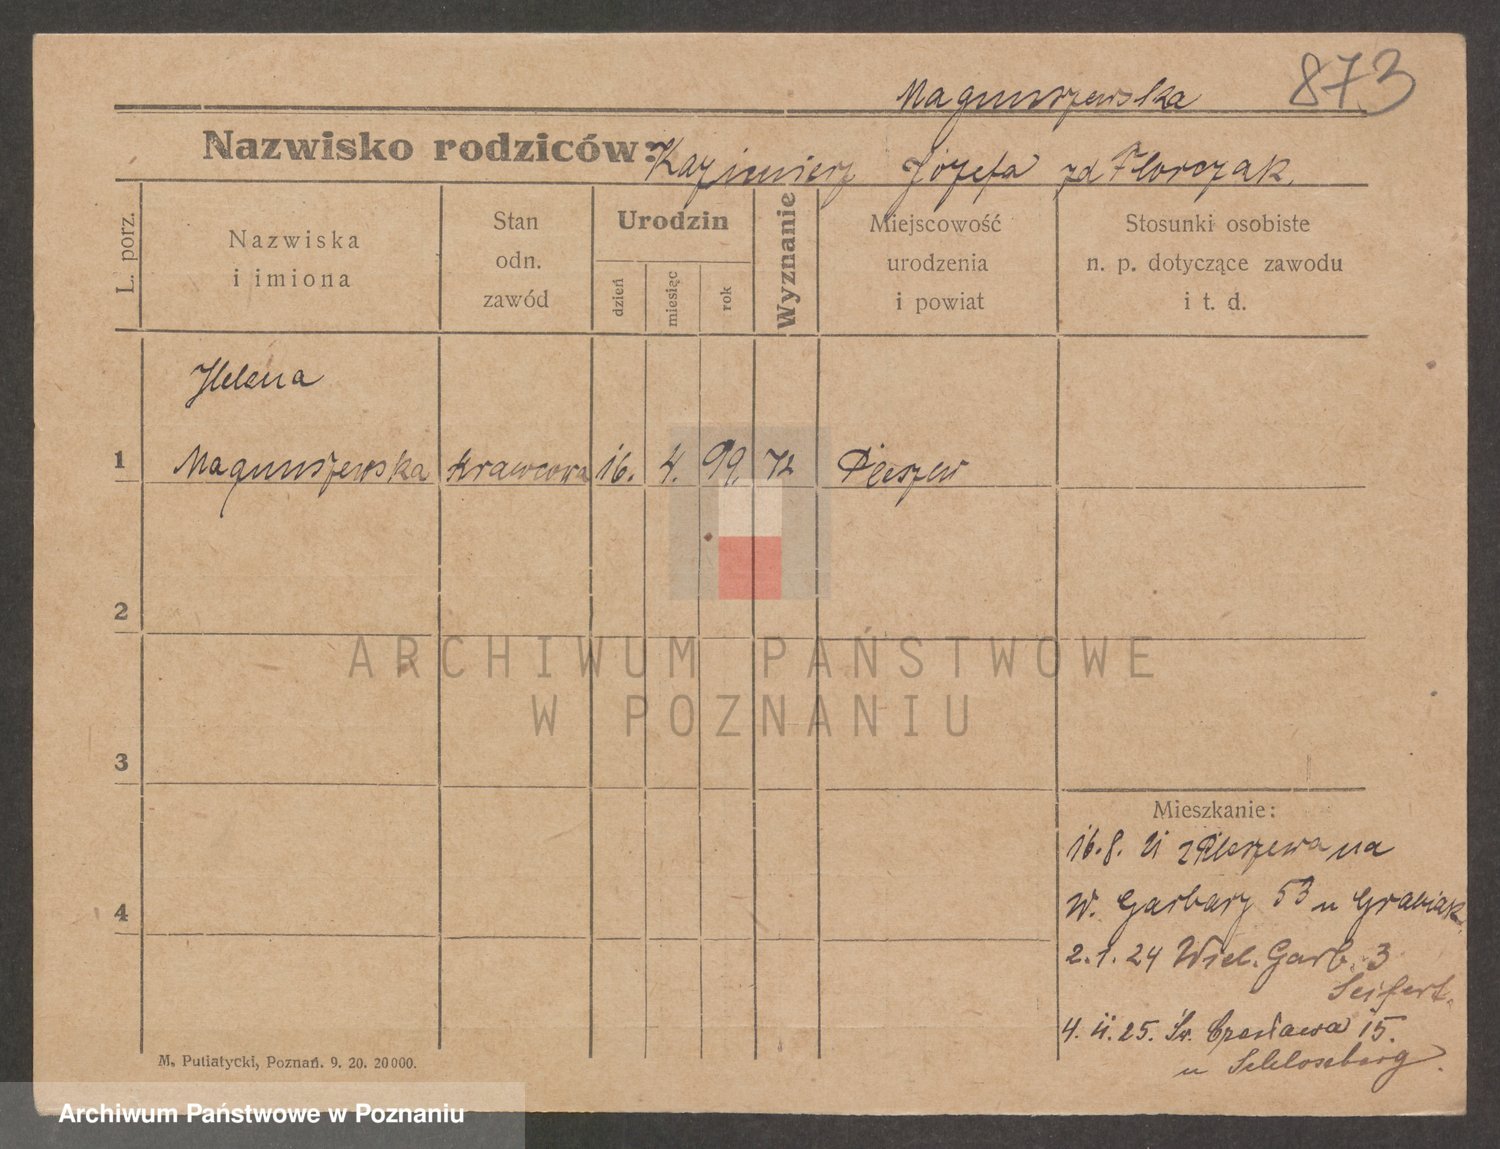 Magnuszewska 873
Nazwisko rodziców: Kazimierz Józefa zd Florczak.
L. porz.
Nazwiska
i imiona
Stan
odn.
zawód
Urodzin
dzień
miesiąc
rok
Wyznanie
Miejscowość
urodzenia
i powiat
Stosunki osobiste
n. p. dotyczące zawodu
i t. d.
Helena
1 Magnuszewska krawcowa 16. 4. 99. Pleszew
2
3
4
Mieszkanie:
16.8. z Pleszewa na
W. Garbary 53 u Grabiak
2.1.24 Wiel. Garb. 3
Seifert.
4. 25. Św. Czesława 15.
u Schlosberg.
M. Putiatycki, Poznań. 9. 20. 20000.
ARCHIWUM PAŃSTWOWE
W POZNANIU
Archiwum Państwowe w Poznaniu